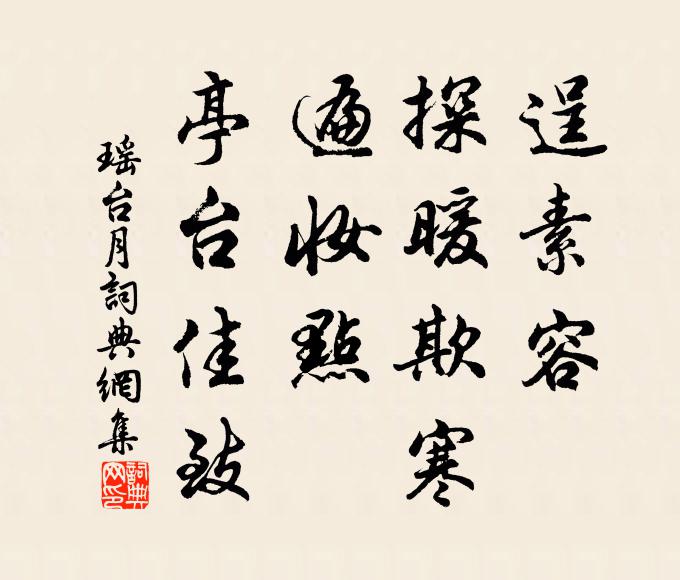 逞素容
探暖欺寒
遍妝點
亭台佳致
瑶台月詞典網集
詞典网印